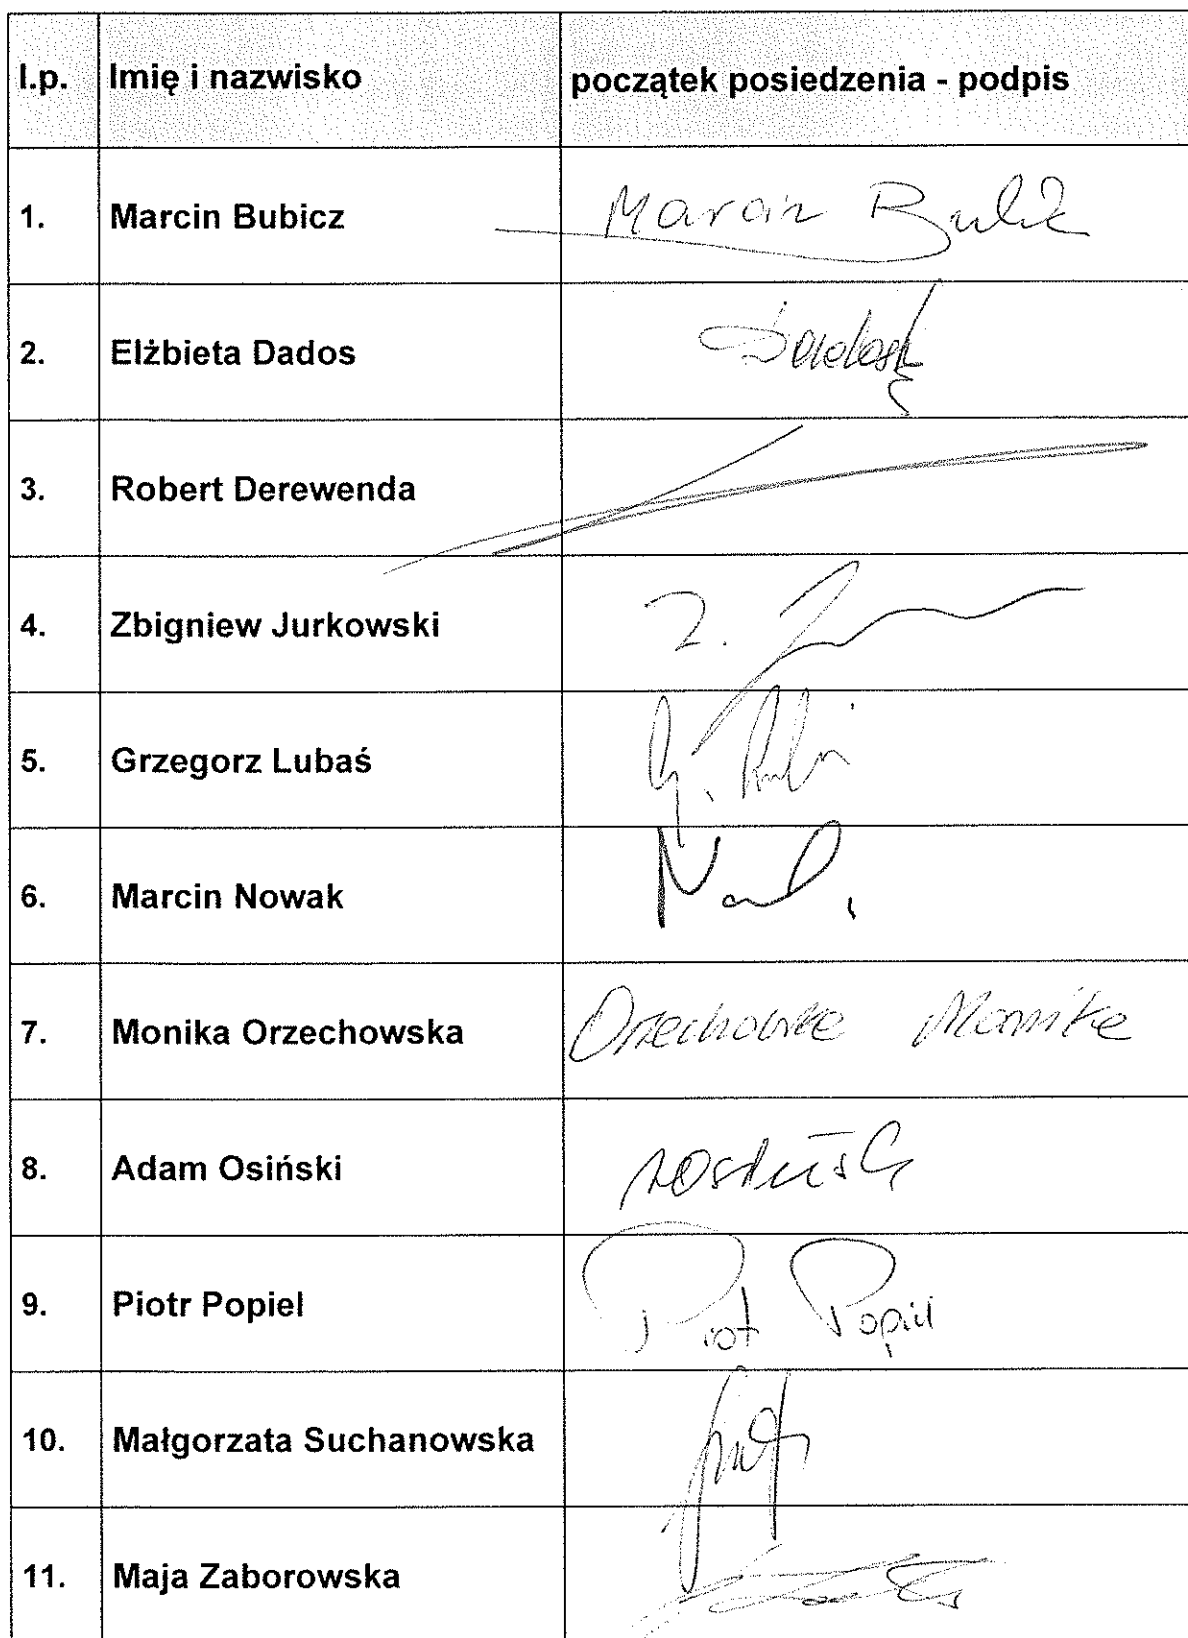 l.p. Imię i nazwisko początek posiedzenia - podpis
1. Marcin Bubicz Marcin
2. Elżbieta Dados
3. Robert Derewenda
4. Zbigniew Jurkowski Z.
5. Grzegorz Lubaś G.
6. Marcin Nowak
7. Monika Orzechowska
8. Adam Osiński
9. Piotr Popiel Piotr Popiel
10. Małgorzata Suchanowska
11. Maja Zaborowska